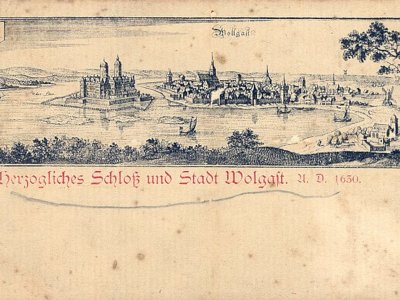 Wolgast
Herzogliches Schloß und Stadt Wolgast. A. D. 1630.